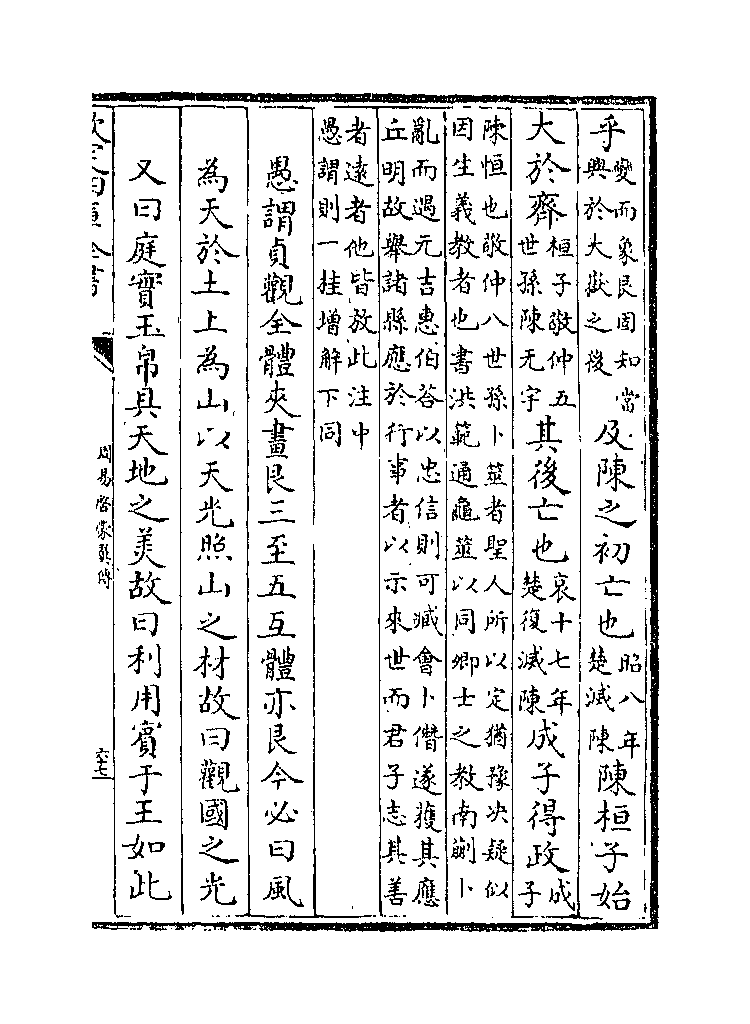 乎變而象艮固知當興於大嶽之後及陳之初亡也昭八年楚滅陳陳桓子始
大於齊桓子敬仲五世孫陳无宇其後亡也哀十七年楚復滅陳成子得政成子
陳恒也敬仲八世孫卜筮者聖人所以定猶豫决疑似
因生義教者也書洪範通龜筮以同卿士之教南蒯卜
亂而遇元吉惠伯荅以忠信則可臧會卜僭遂獲其應
丘明故舉諸縣應於行事者以示來世而君子志其善
者遠者他皆放此注中
愚謂則一挂增解下同
愚謂貞觀全體夾畫艮三至五互體亦艮今必曰風
為天於土上為山以天光照山之材故曰觀國之光
又曰庭實玉帛具天地之美故曰利用賓于王如此
欽定四庫全書
周易啓蒙翼傳